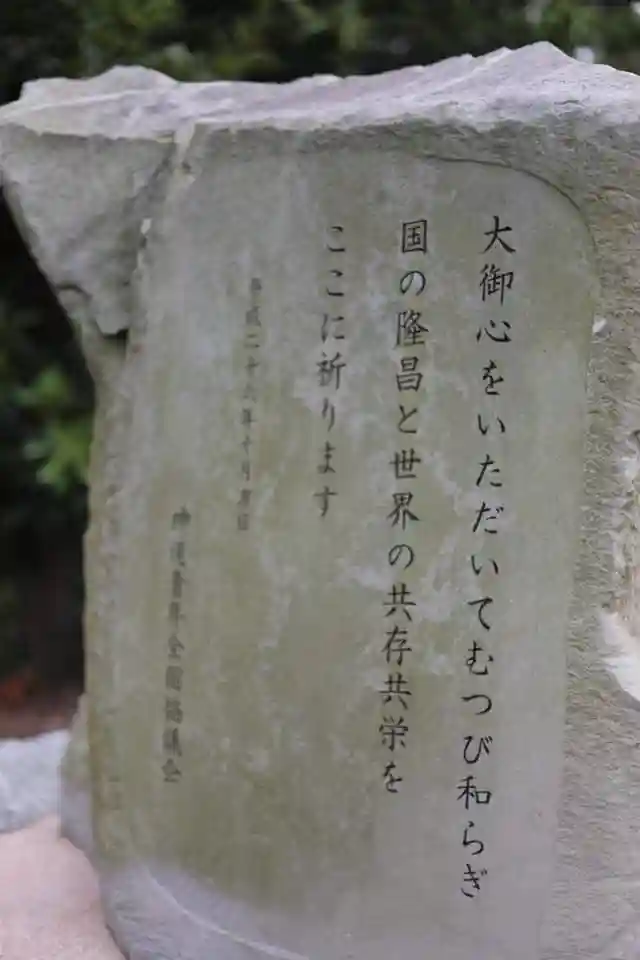 大御心をいただいてむつび和らぎ
国の隆昌と世界の共存共栄を
ここに祈ります
平成二十六年十月吉日
神道青年全国協議会